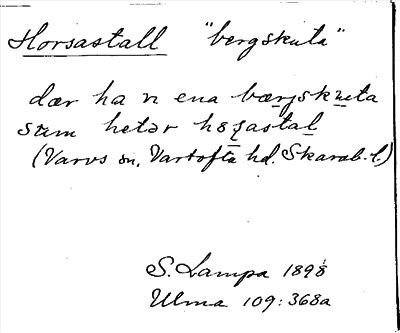 Horsastall "bergskuta"
dær ha vi ena bærjskuta
sum hetər hoʂastal
(Varvs sn, Vartofta hd. Skarab. l.)
S. Lampa 1898
Ulma 109:368a